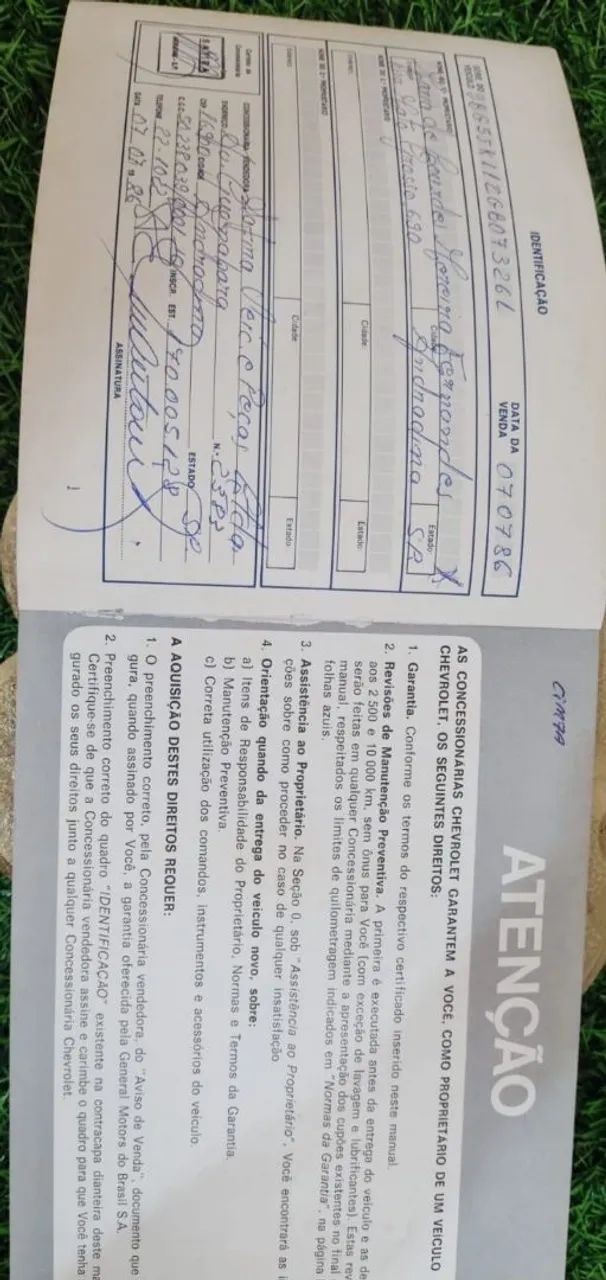 IDENTIFICAÇÃO
SÉRIE DO VEÍCULO
DATA DA VENDA 070786
NOME DO 1º PROPRIETÁRIO
de Lourdes Moreira Fernandes
690
Cidade:
Andradina
Estado:
SP
NOME DO 2º PROPRIETÁRIO
Cidade:
Estado:
NOME DO 3º PROPRIETÁRIO
Cidade:
Estado:
Carimbo da Concessionária
CONCESSIONÁRIA VENDEDORA
Peças Ltda
ENDEREÇO
Guanapara
N.º 2383
CEP 16900 CIDADE Andradina ESTADO SP
INSCR. EST.
TELEFONE 22-1022
DATA 07 07 19 86
ASSINATURA
1
ATENÇÃO
AS CONCESSIONÁRIAS CHEVROLET GARANTEM A VOCÊ, COMO PROPRIETÁRIO DE UM VEÍCULO
CHEVROLET, OS SEGUINTES DIREITOS:
1. Garantia. Conforme os termos do respectivo certificado inserido neste manual.
2. Revisões de Manutenção Preventiva. A primeira é executada antes da entrega do veículo e as de
aos 2 500 e 10 000 km, sem ônus para Você (com exceção de lavagem e lubrificantes). Estas rev
serão feitas em qualquer Concessionária mediante a apresentação dos cupões existentes no final
manual, respeitados os limites de quilometragem indicados em "Normas da Garantia", na página
folhas azuis.
3. Assistência ao Proprietário. Na Seção 0, sob "Assistência ao Proprietário", Você encontrará as i
ções sobre como proceder no caso de qualquer insatisfação.
4. Orientação quando da entrega do veículo novo, sobre:
a) Itens de Responsabilidade do Proprietário, Normas e Termos da Garantia.
b) Manutenção Preventiva.
c) Correta utilização dos comandos, instrumentos e acessórios do veículo.
A AQUISIÇÃO DESTES DIREITOS REQUER:
1. O preenchimento correto, pela Concessionária vendedora, do "Aviso de Venda", documento que
gura, quando assinado por Você, a garantia oferecida pela General Motors do Brasil S.A.
2. Preenchimento correto do quadro "IDENTIFICAÇÃO" existente na contracapa dianteira deste ma
Certifique-se de que a Concessionária vendedora assine e carimbe o quadro para que Você tenha
gurado os seus direitos junto a qualquer Concessionária Chevrolet.